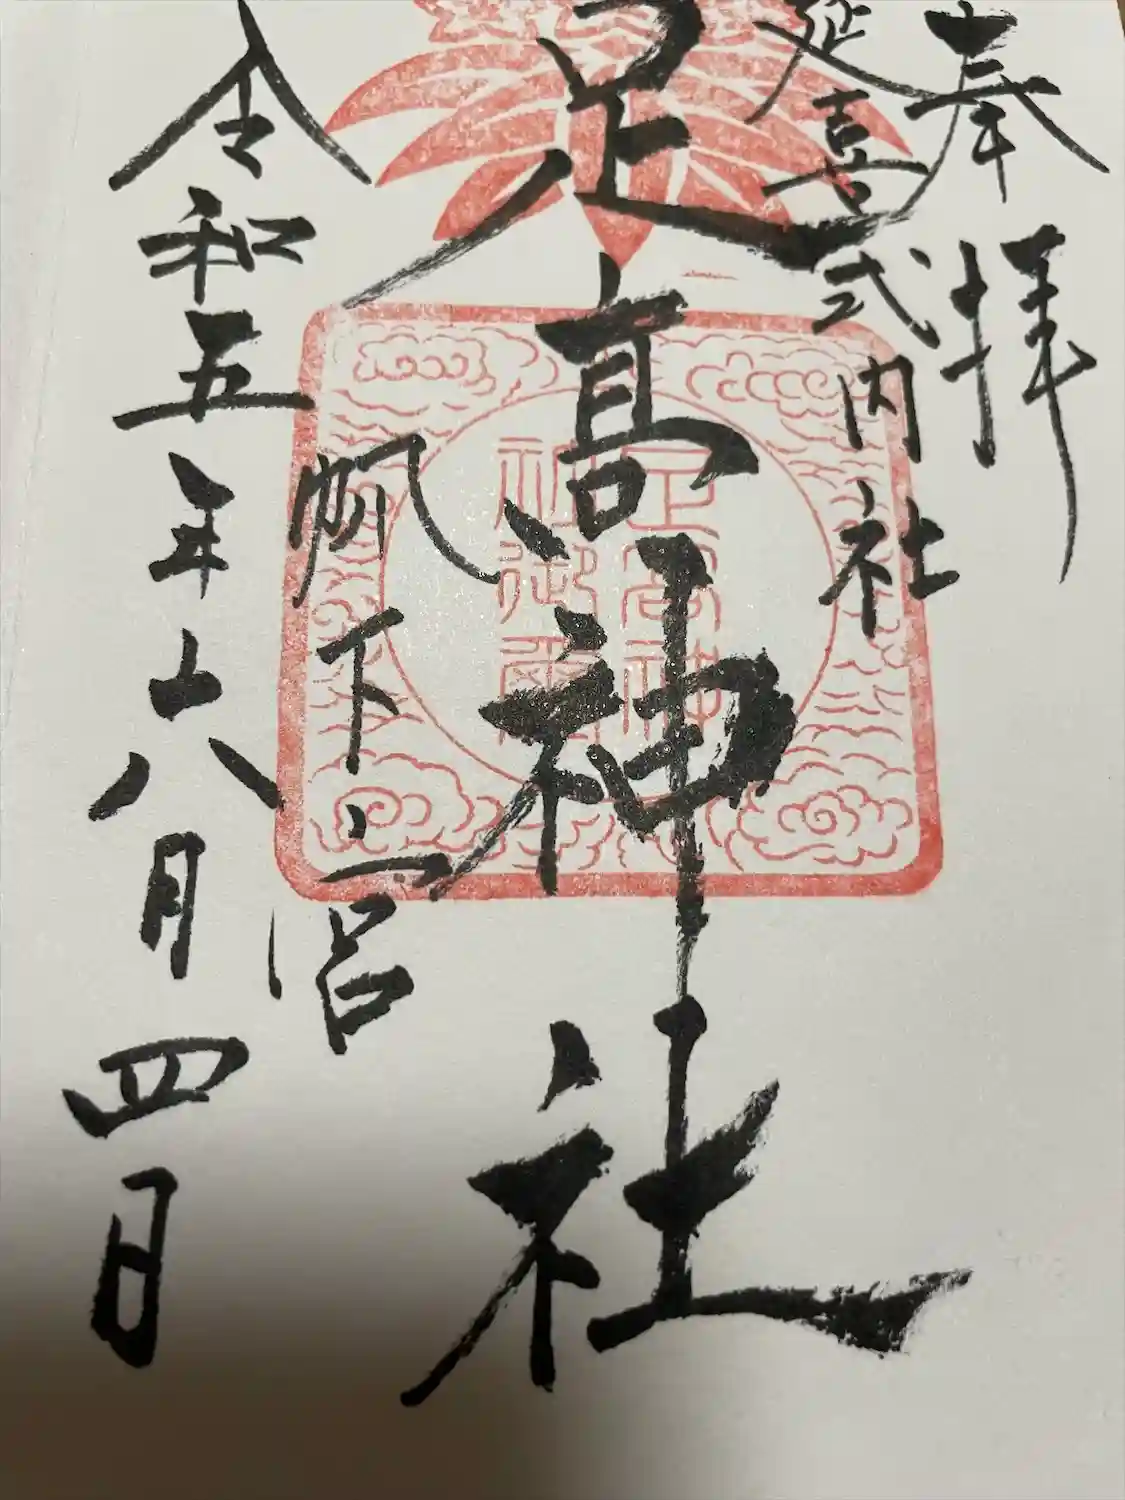 奉拝
延喜式内社
足高神社
帆下宮
令和五年八月四日
足高神
社御璽